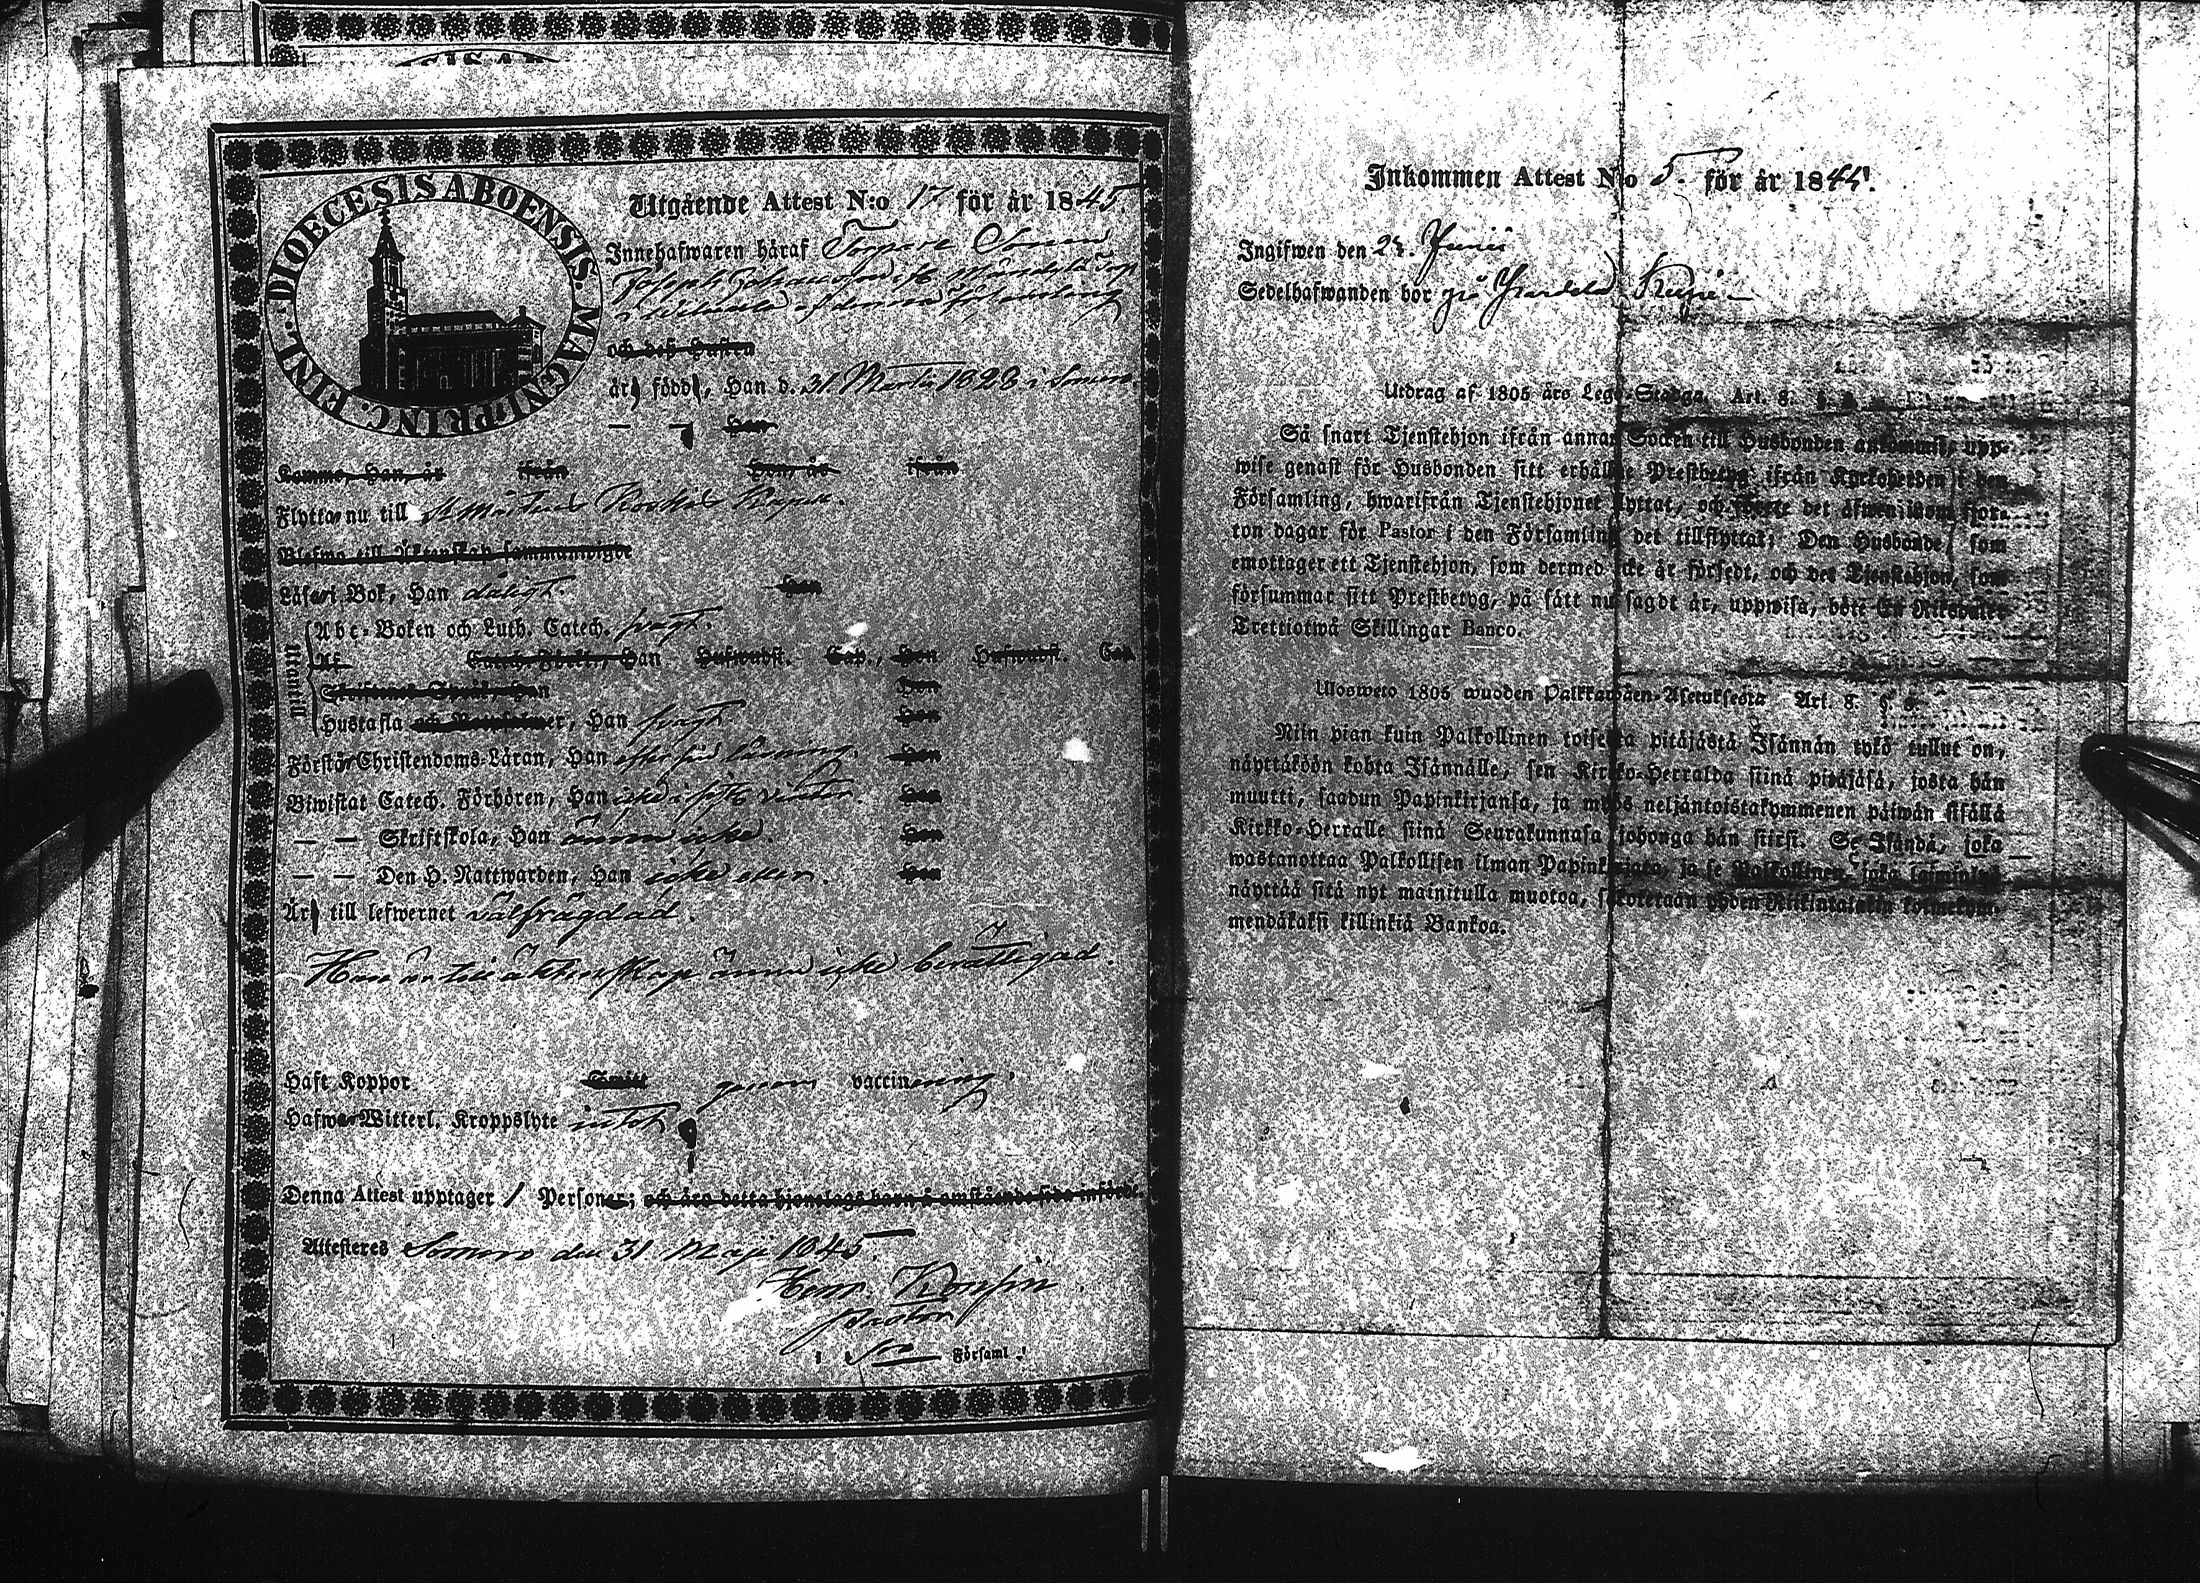 DIOECESIS ABOENSIS. MAGNI: PRINC. FINL.
Utgående Attest N:o 17 för år 1845.
Innehafwaren häraf Torpare Sonen
Joseph Johansson ifr.
i denna Församling
och deß Hustru
är född, Han d. 31 Martii 1828 i Somero
— — Hon
Kommo, Han, år ifrån Hon, år ifrån
Flyttar nu till St Mårtens Koskis Kapell.
Blefwo till Äktenskap sammanwigde
Läser i Bok, Han dåligt. Hon
Utantill
Abc-Boken och Luth. Catech. swagt.
Af Catech. Han Huswudst. Cap., Hon Huswudst. Cap
Hon
Hustafla och er, Han swagt. Hon
Förstår Christendoms-Läran, Han efter sin läsning. Hon
Biwistat Catech. Förhören, Han icke i sistl. vinter. Hon
— — Skriftskola, Han ännu icke. Hon
— — Den H. Nattwarden, Han icke eller. Hon
Är till lefwernet välfrägdad.
Han är till äktenskap ännu icke berättigad.
Haft Koppor Smitt genom vaccinering.
Hafwer Witterl. Kroppslyte intet
Denna Attest upptager 1 Person; och äro detta hjonelags barn å omstående sida införde
Attesteres Somero den 31 Maji 1845.
Pastor
i Församl.
Inkommen Attest N:o 5. för år 1845.
Ingifwen den 24. Junii
Sedelhafwanden bor på
Utdrag af 1805 års Lego-Stadga. Art. 8.
Så snart Tjenstehjon ifrån annan Socken till Husbonden ankommit, upp-
wise genast för Husbonden sitt erhållne Prestbetyg ifrån Kyrkoherden i den
Församling, hwarifrån Tjenstehjonet flyttat, och förete det äfwen inom fjor-
ton dagar för Pastor i den Församling det tillflyttat; Den Husbonde, som
emottager ett Tjenstehjon, som dermed icke är försedt, och det Tjenstehjon, som
försummar sitt Prestbetyg, på sätt nu sagdt är, uppwisa, böte En Riksdaler
Trettiotwå Skillingar Banco.
Ulosweto 1805 wuoden Palkkawäen-Asetuksesta Art. 8. §.
Niin pian kuin Palkollinen toisesta pitäjästä Isännän tykö tullut on,
näyttäköön kohta Isännälle, sen Kirkko-Herralda siinä pitäjäsä, josta hän
muutti, saadun Papinkirjansa, ja myös neljäntoistakymmenen päiwän sisällä
Kirkko-Herralle siinä Seurakunnasa johonga hän siirsi. Se Isändä, joka
wastanottaa Palkollisen ilman Papinkirjata, ja se Palkollinen, joka laiminlyö
näyttää sitä nyt mainitulla muotoa, sakotetaan yhden Riikintalarin kolmekym-
mendäkaksi killinkiä Bankoa.